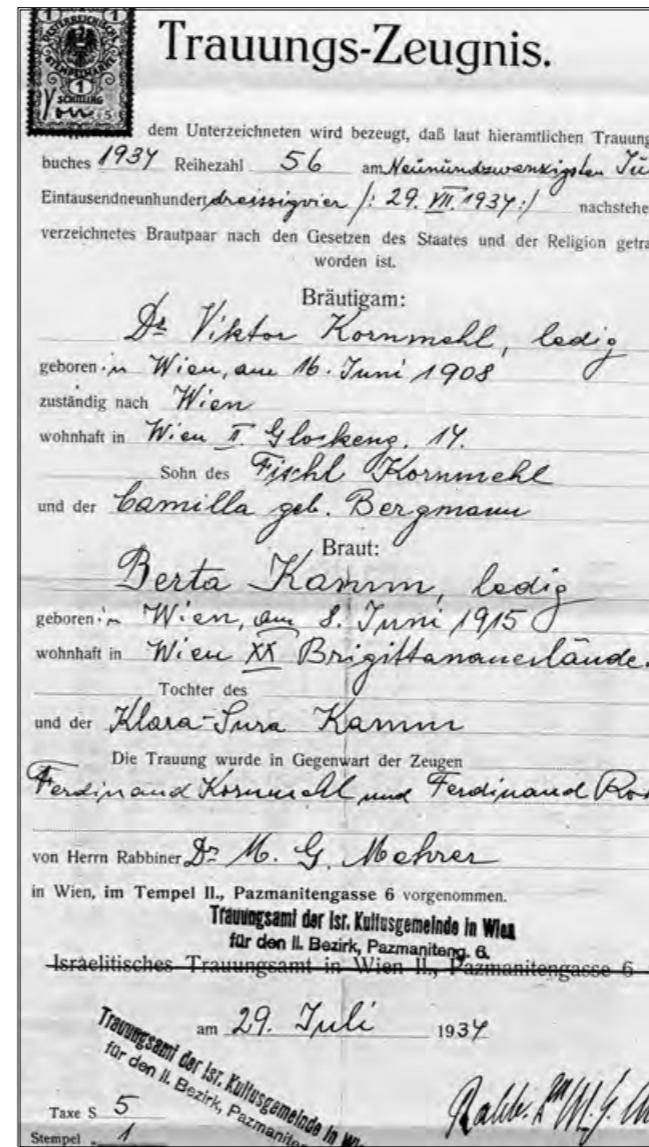 1 1
ÖSTERREICHISCHE
STEMPELMARKE
1
SCHILLING
Trauungs-Zeugnis.
dem Unterzeichneten wird bezeugt, daß laut hieramtlichen Trauung
buches 1934 Reihezahl 56 am Neunundzwanzigsten Ju
Eintausendneunhundert dreissigvier /: 29. VII. 1934 :/ nachstehe
verzeichnetes Brautpaar nach den Gesetzen des Staates und der Religion getra
worden ist.
Bräutigam:
Dr Viktor Kornmehl, ledig
geboren in Wien, am 16. Juni 1908
zuständig nach Wien
wohnhaft in Wien II. Glockeng. 14.
Sohn des Fischl Kornmehl
und der Camilla geb. Bergmann
Braut:
Berta Kamm, ledig
geboren in Wien, am 8. Juni 1915
wohnhaft in Wien XX Brigittanauerlände.
Tochter des
und der Klara-Sura Kamm
Die Trauung wurde in Gegenwart der Zeugen
Ferdinand Kornmehl und Ferdinand
von Herrn Rabbiner Dr M. G. Mehrer
in Wien, im Tempel II., Pazmanitengasse 6 vorgenommen.
Trauungsamt der Isr. Kultusgemeinde in Wien
für den II. Bezirk, Pazmaniteng. 6.
Israelitisches Trauungsamt in Wien II., Pazmanitengasse 6
am 29. Juli 1934
Trauungsamt der Isr. Kultusgemeinde in Wi
für den II. Bezirk, Pazmanite
Taxe S 5
Stempel „ 1
Rabb. Dr M. G.